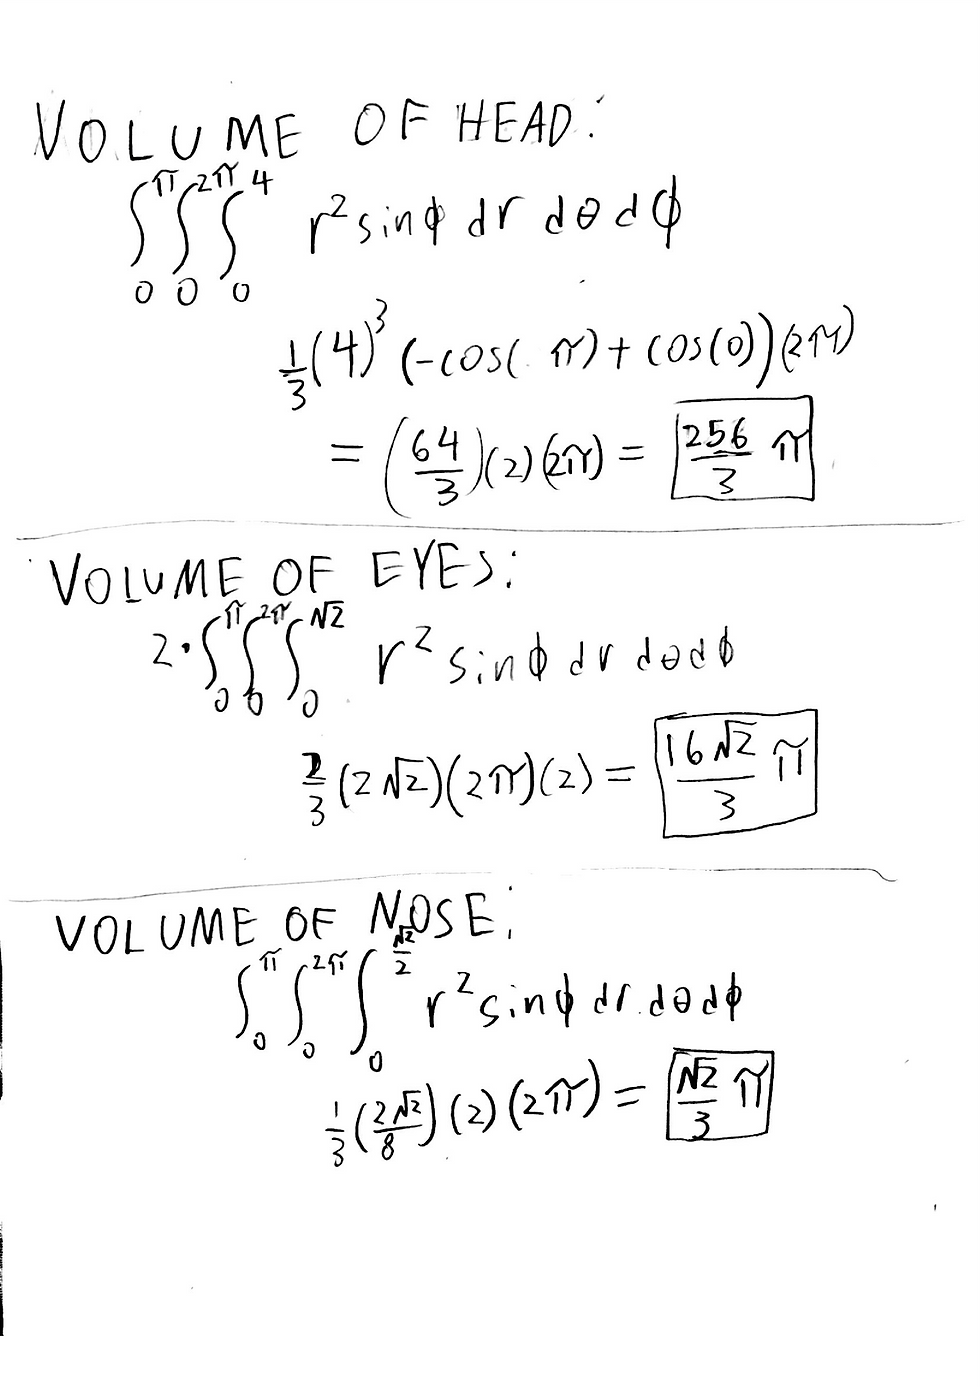 VOLUME OF HEAD:
∫₀^π ∫₀^2π ∫₀^4 r² sinϕ dr dθ dϕ
1/3 (4)³ (-cos( π) + cos(0)) (2π)
= (64/3)(2)(2π) = 256/3 π
VOLUME OF EYES:
2·∫₀^π ∫₀^2π ∫₀^√2 r² sinϕ dr dθ dϕ
2/3 (2√2)(2π)(2) = 16√2/3 π
VOLUME OF NOSE:
∫₀^π ∫₀^2π ∫₀^(√2/2) r² sinϕ dr dθ dϕ
1/3 (2√2/8) (2) (2π) = √2/3 π